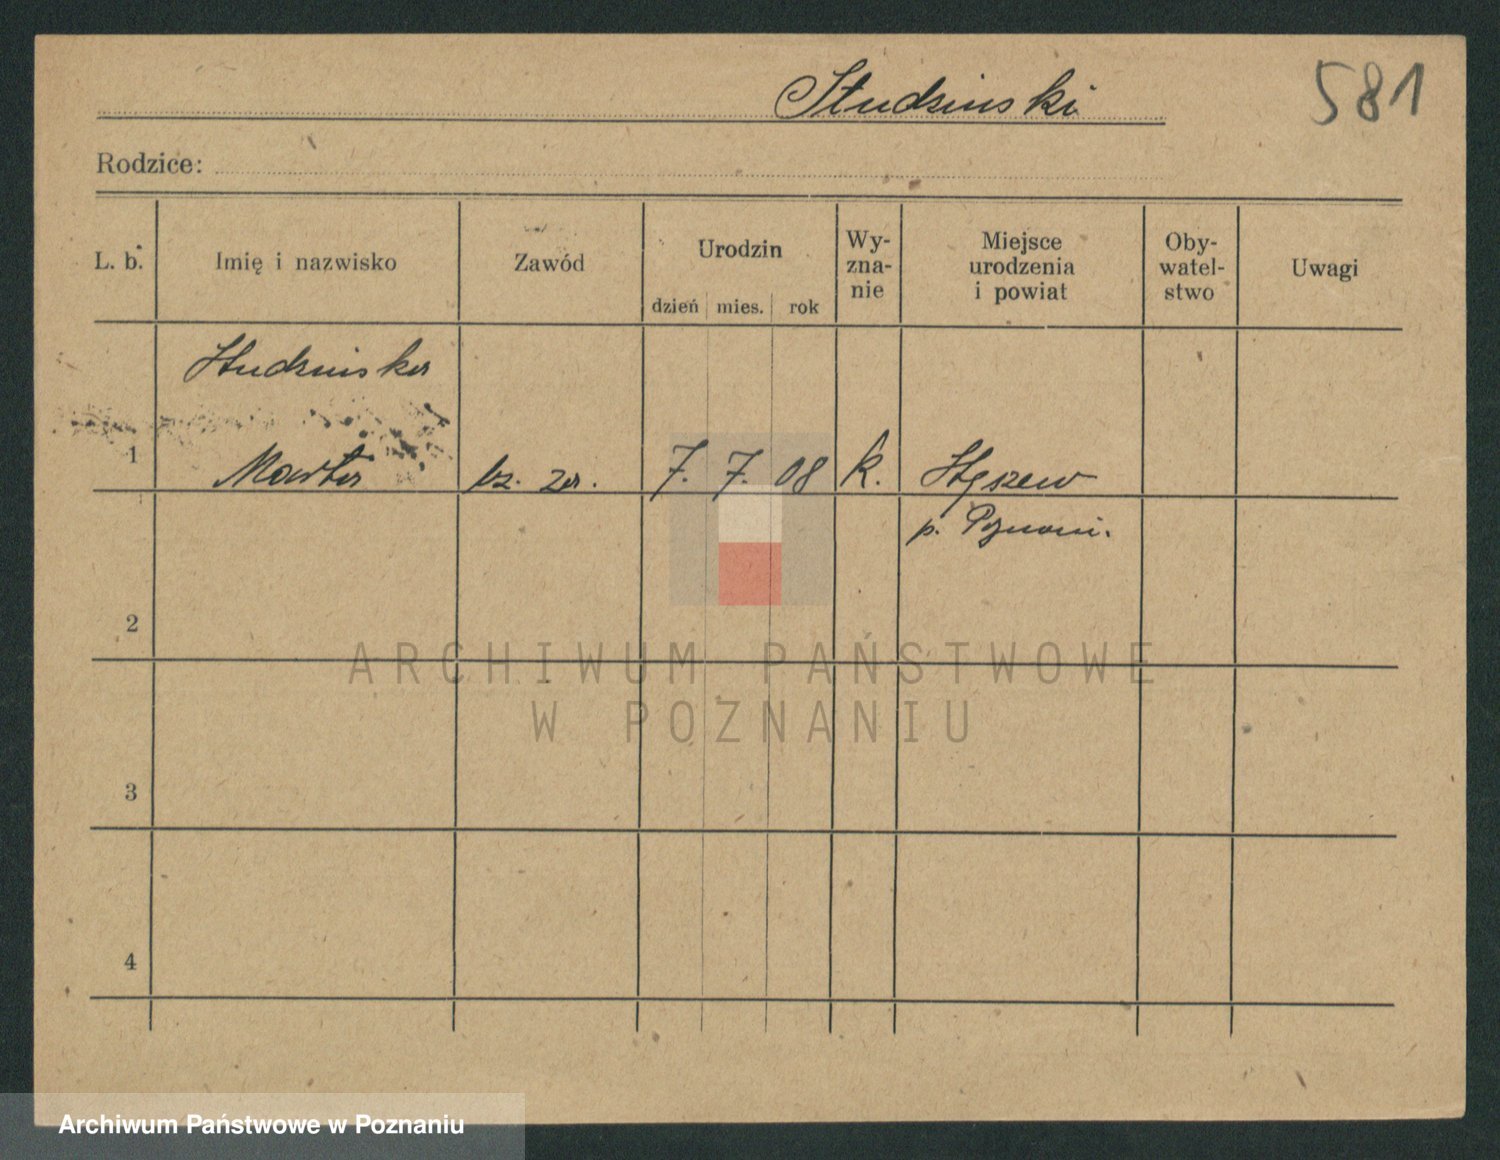 Studzinski
581
Rodzice:
L. b.
Imię i nazwisko
Zawód
Urodzin
dzień mies. rok
Wy-
zna-
nie
Miejsce
urodzenia
i powiat
Oby-
watel-
stwo
Uwagi
Studzinska
1 Marta bz. za. 7. 7. 08 k. Stęszew
p. Poznań.
2
3
4
ARCHIWUM PAŃSTWOWE
W POZNANIU
Archiwum Państwowe w Poznaniu